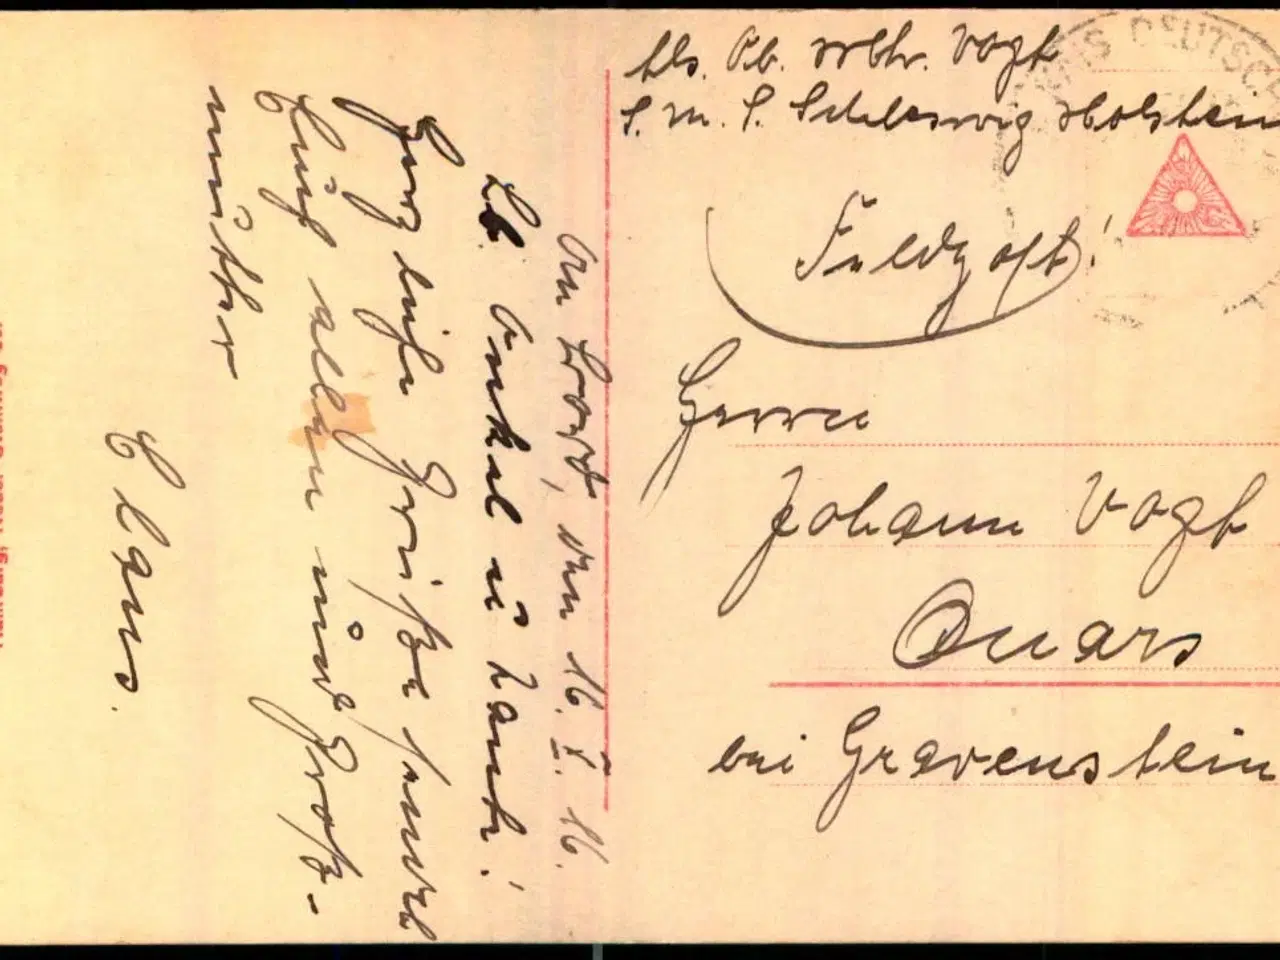 Abs. Ob. Mtr. Vogt
S. M. S. Schleswig Holstein
Feldpost!
Herrn
Johann Vogt
Quars
bei Gravenstein
An Bord, den 16. X. 16.
Lb. Onkel u. Tante!
Herzliche Grüße sendet
Euch allen und Groß-
mutter
Claus.